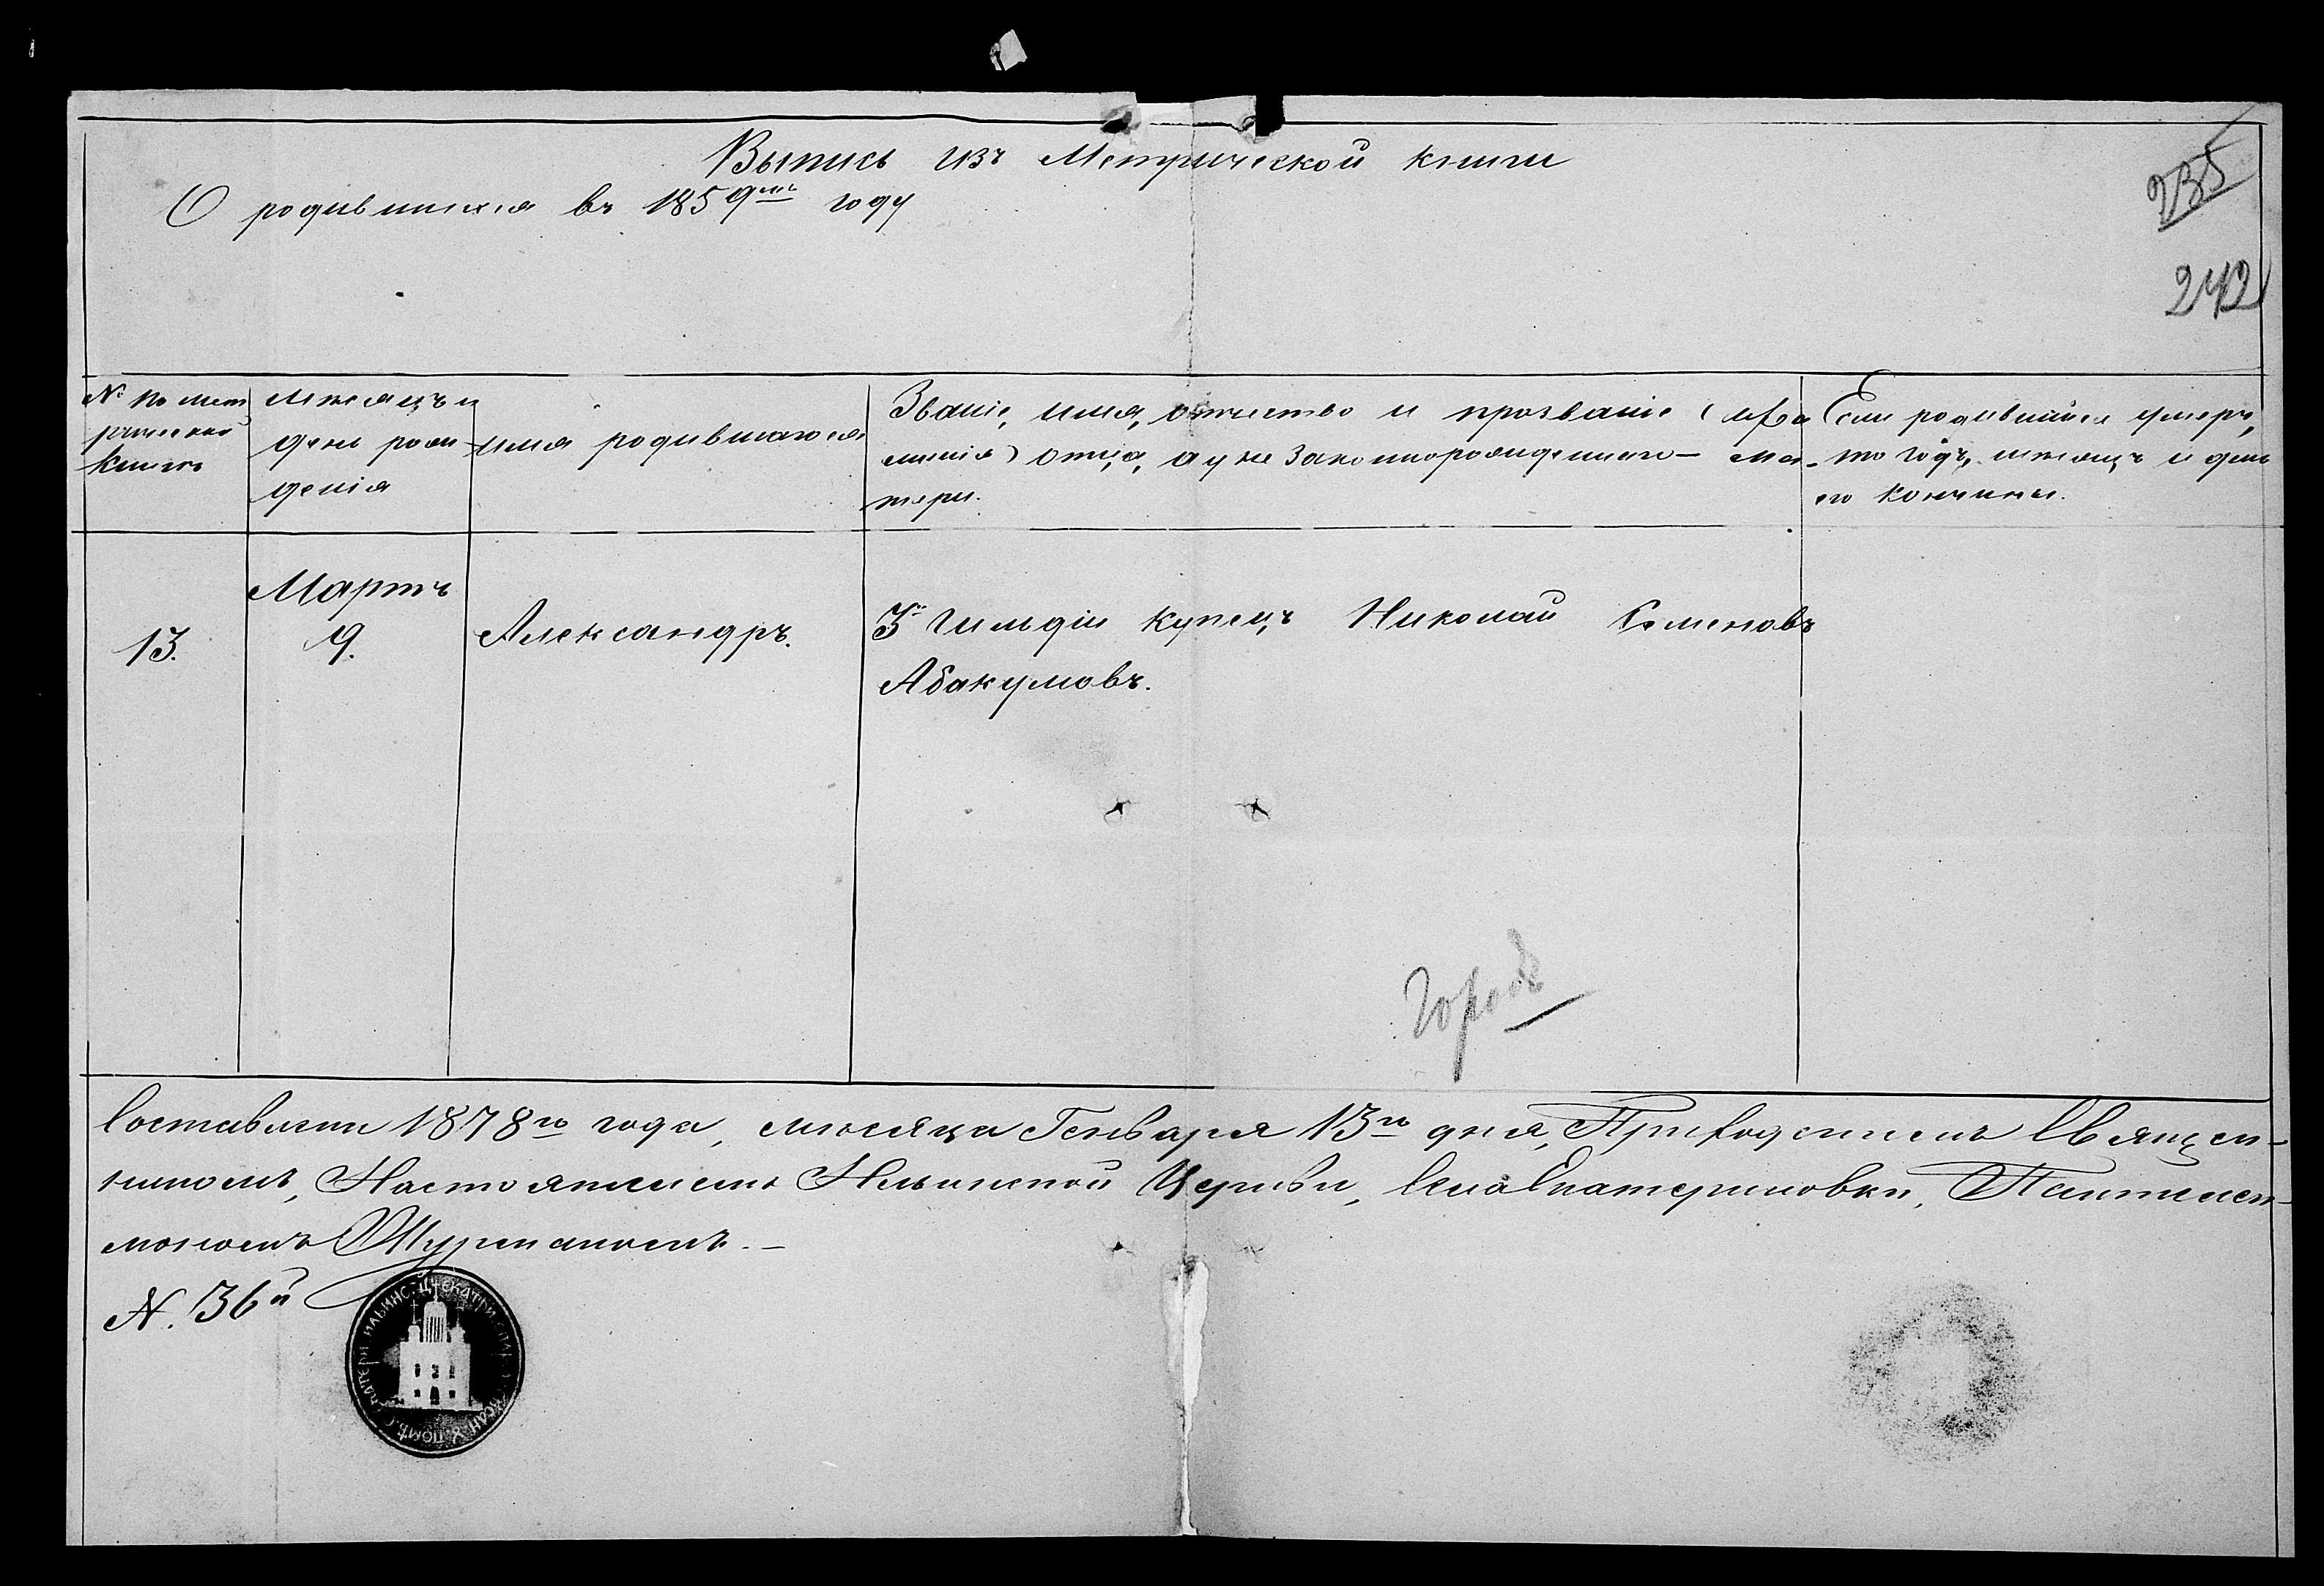 Выпись изъ Метрической книги
О родившихся въ 1859мъ году
235
242
№ по мет
рической
книгѣ
мѣсяцъ и
день рож
денія
имя родившагося
Званіе, имя, отчество и прозваніе (фа
милія) отца, а у не законнорожденнаго – ма-
тери.
Если родившійся умеръ,
то годъ, мѣсяцъ и день
его кончины.
13.
Мартъ
9.
Александръ.
3й гильдіи купецъ Николай Семеновъ
Абакумовъ.
Городъ
Составлена 1878го года, мѣсяца Генваря 13го дня, Приходскимъ Священ-
никомъ, Настоятелемъ Ильинской Церкви, Села Екатериновки, Пантелей-
мономъ
№. 36й